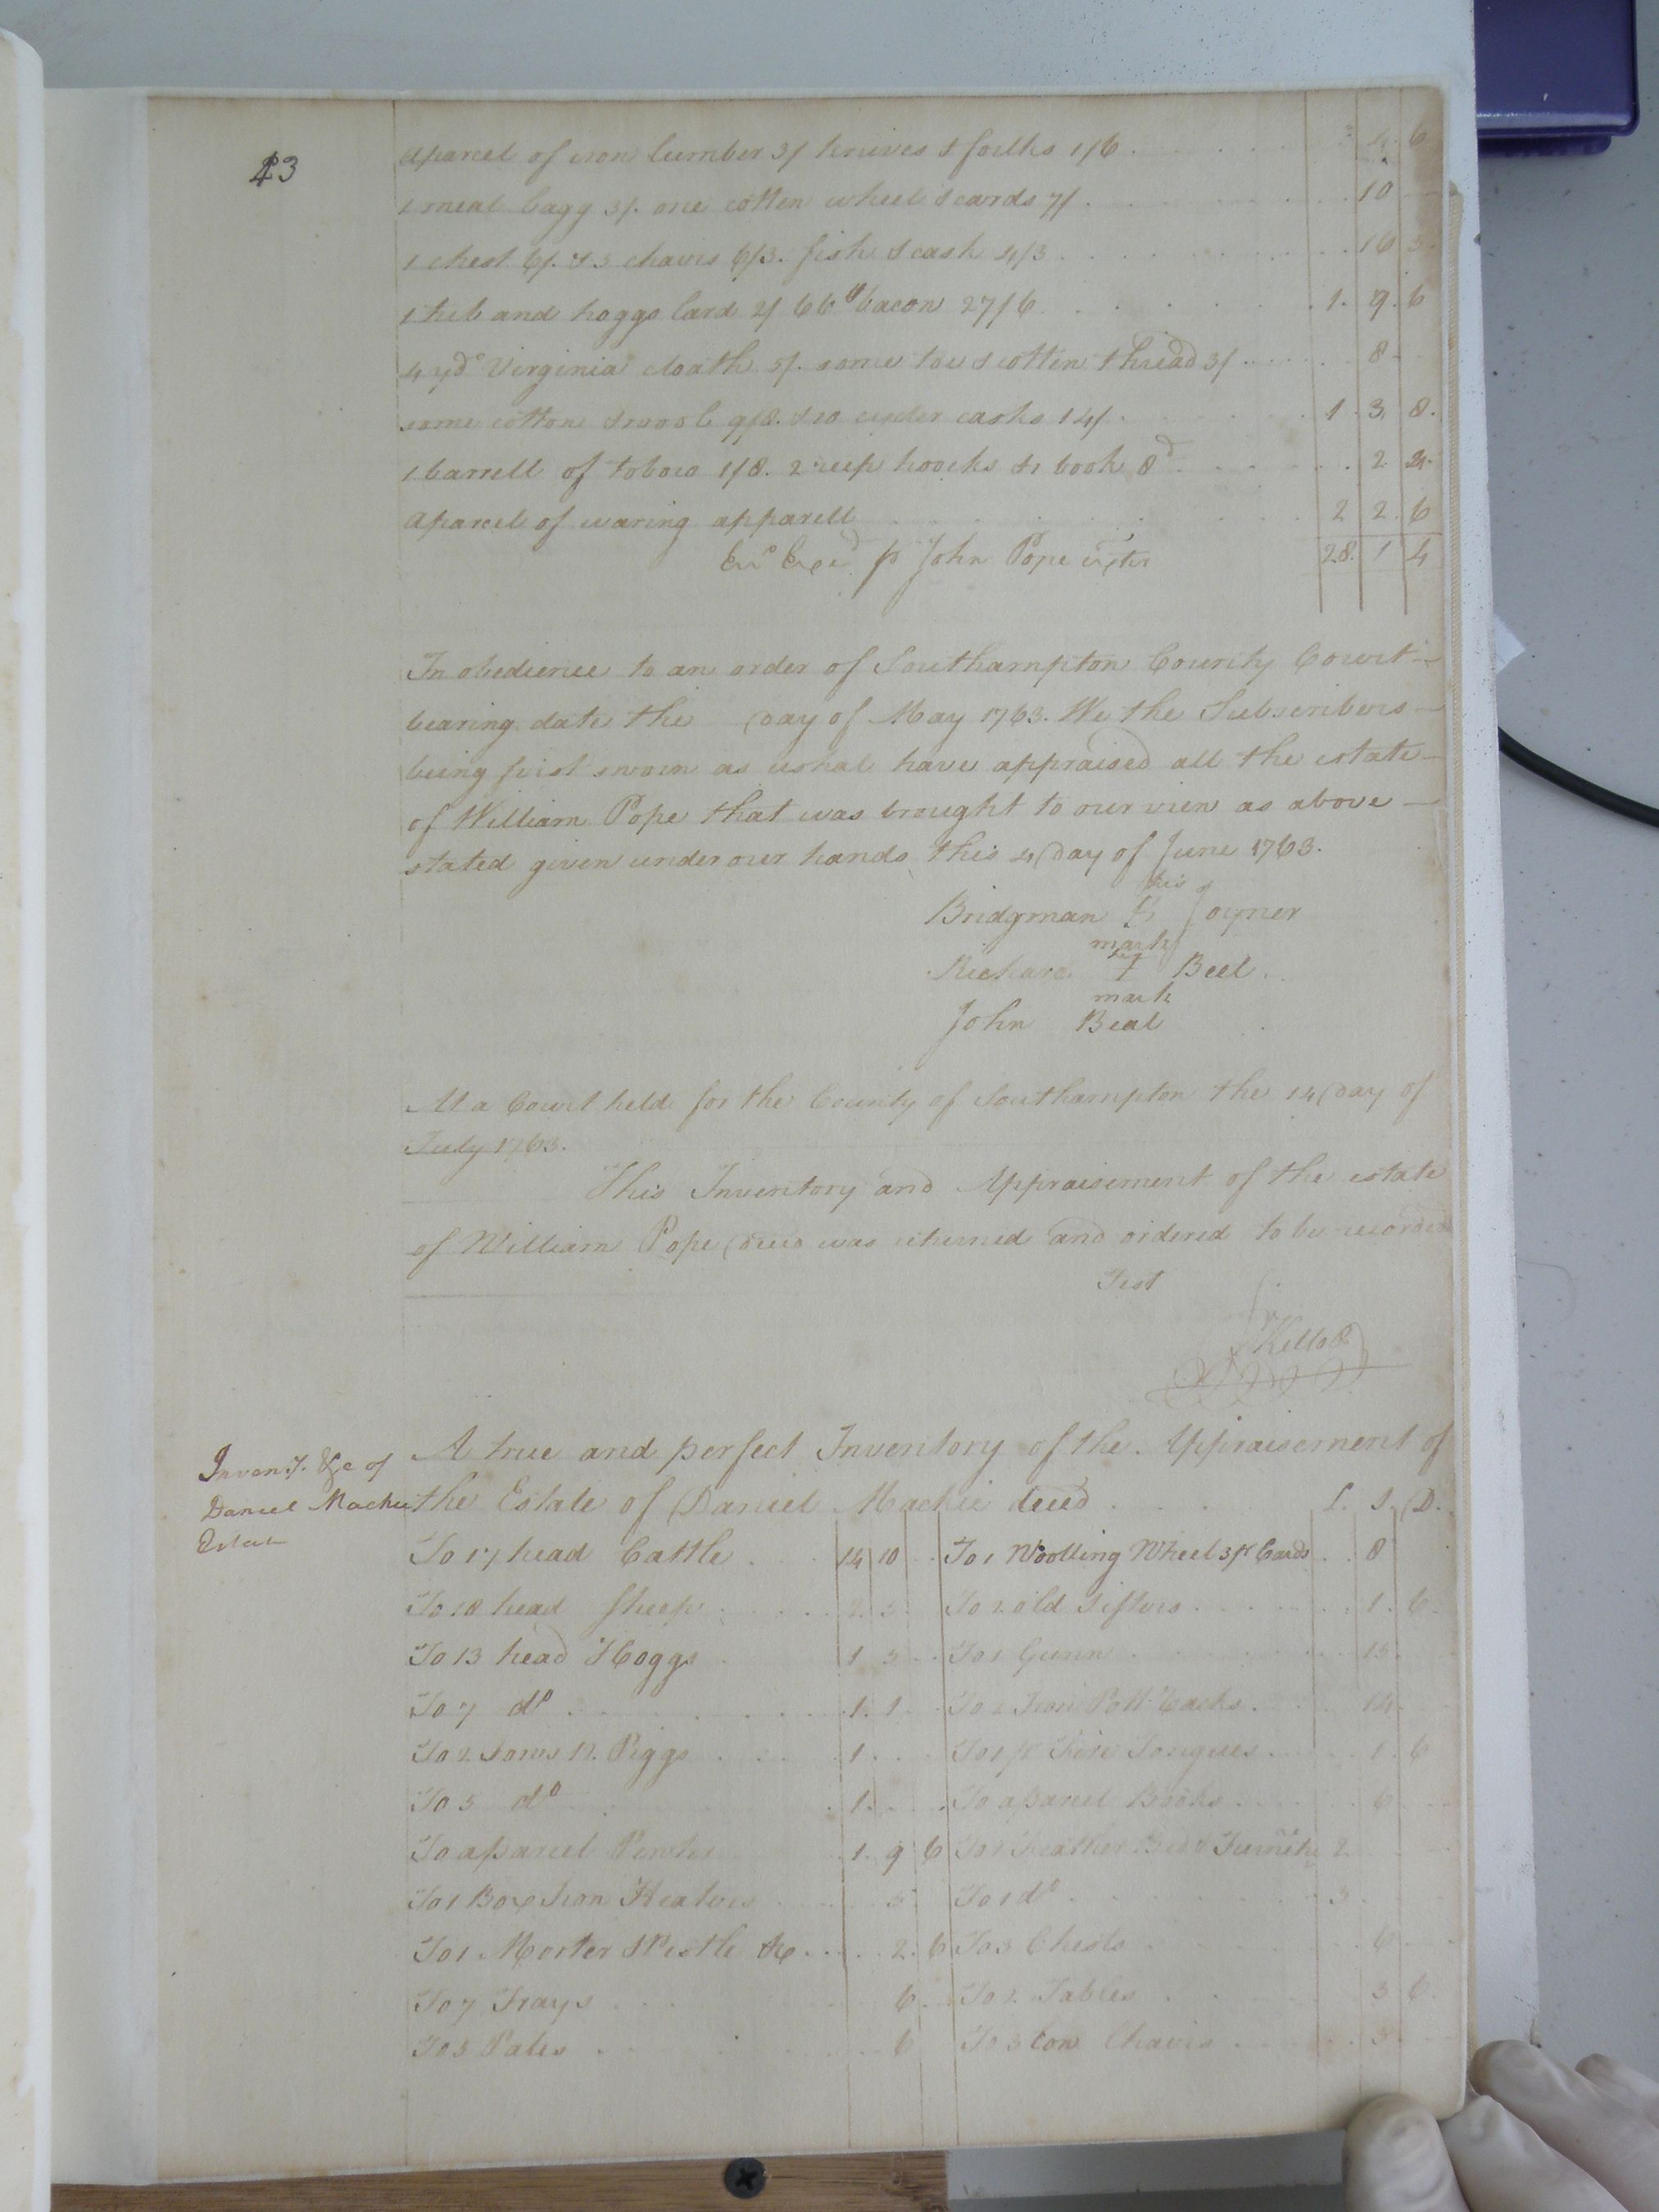 43
aparcel of iron lumber 3/ knives & folks 1/6 4 6
1 meal bagg 3/. one cotten wheel & cards 7/ 10
1 chest 6/. & 5 chairs 6/3. fish & cask 4/3 16 3
1 tub and hoggs lard 2/ 66 bacon 27/6 1. 9. 6
4 yds Virginia cloath 5/. some tow & cotten thread 3/ 8
some cotton & wool 9/8. & 10 cyder casks 14/ 1. 3. 8.
1 barrell of 1/8. 2 reep hoocks & 1 book 8d 2
aparcel of waring apparell 2 2. 6
p John Pope 28. 1 4
In obedience to an order of Southampton County Court
bearing date the day of May 1763. We the Subscribers
being first sworn as ushal have appraised all the estate
of William Pope that was brought to our view as above
stated given under our hands this 4 day of June 1763.
his
Bridgman Joyner
mark
Richard Beel
mark
John Beal
At a Court held for the County of Southampton the 14 day of
July 1763.
This Inventory and Appraisement of the estate
of William Pope deced was returned and ordered to be recorded
Test
Inven.y. &c of
Daniel Mackie
Estate
A true and perfect Inventory of the Appraisement of
the Estate of Daniel Mackie deced L. S. D.
To 17 head Cattle 14 10 To 1 Woolling Wheel 3 pr Cards 8
To 18 head Sheep 2. 5 To 2 old Sifters 1. 6
To 13 head Hoggs 1 5 To 1 Gunn 15
To 7 do 1. 1 To 2 Iron Pott Racks 14
To 2 Sows 12. Piggs 1 To 1 pr Fire Tongues 1. 6
To 5 do 1. To aparcel Books 6
To aparcel Pewter 1. 9 6 To 1 Feather Bed & Furnitr 2
To 1 Box Iron Heaters 5 To 1 do 3
To 1 Morter & Pestle &c 2. 6 To 3 Chests 6
To 7 Trays 6 To 2 Tables 3 6
To 5 Pales 6 To 3 low Chairs 3